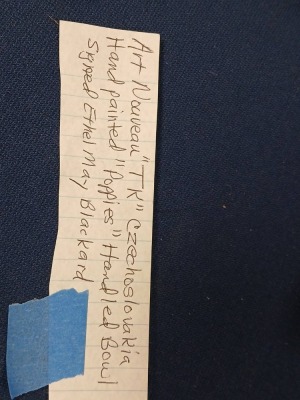 Art Nouveau "TK" Czechoslovakia
Hand painted "Poppies" Handled Bowl
Signed Ethel May Blackard